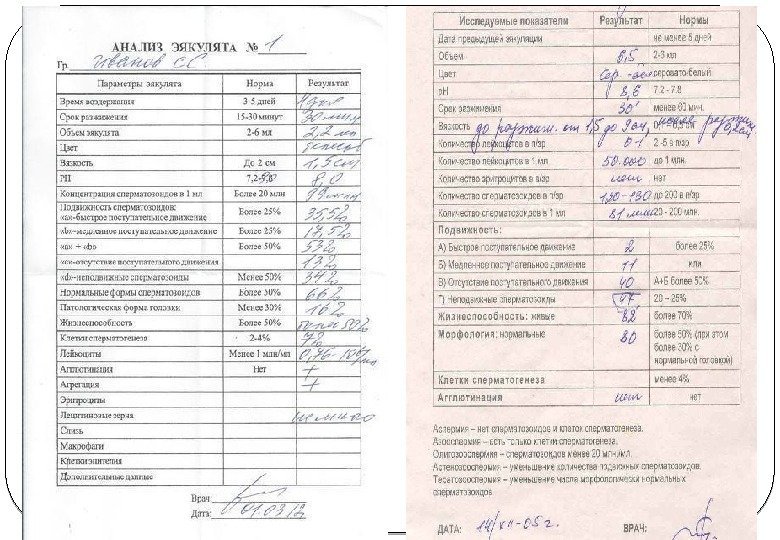 АНАЛИЗ ЭЯКУЛЯТА № 1
Гр. Иванов СС
Параметры эякулята Норма Результат
Время воздержания 3-5 дней
Срок разжижения 15-30 минут 30 мин
Объем эякулята 2-6 мл 2,2 мл
Цвет
Вязкость До 2 см 1,5 см
РН 7,2- 8,0
Концентрация сперматозоидов в 1 мл Более 20 млн 99 млн
Подвижность сперматозоидов:
«а»-быстрое поступательное движение Более 25% 35,5%
«b»-медленное поступательное движение Более 25% 17,5%
«а» + «b» Более 50% 53%
«с»-отсутствие поступательного движения 13%
«d»-неподвижные сперматозоиды Менее 50% 34%
Нормальные формы сперматозоидов Более 30% 66%
Патологическая форма головки Менее 30% 16%
Жизнеспособность Более 50% более 50%
Клетки сперматогенеза 2-4% 7%
Лейкоциты Менее 1 млн/мл 0,96
Агглютинация Нет +
Агрегация +
Эритроциты
Лецитиновые зерна немного
Слизь
Макрофаги
Клетки эпителия
Дополнительные данные
Врач
Дата: 01.03.12
Исследуемые показатели Результат Нормы
Дата предыдущей эякуляции не менее 5 дней
Объем 6,5 2-3 мл
Цвет сер. -бел серовато-белый
рН 8,6 7,2 - 7,8
Срок разжижения 30' менее 60 мин.
Вязкость до разжиж. от 1,5 до 9 см, после разжиж 0,2 см
Количество лейкоцитов в п/зр 0-1 2 -5 в п/зр
Количество лейкоцитов в 1 мл 50.000 до 1 млн.
Количество эритроцитов в п/зр нет нет
Количество сперматозоидов в п/зр 120-130 до 200 в п/зр
Количество сперматозоидов в 1 мл 81 млн 20 - 200 млн.
Подвижность:
А) Быстрое поступательное движение 2 более 25%
Б) Медленное поступательное движение 11 или
В) Отсутствие поступательного движения 40 А+Б более 50%
Г) Неподвижные сперматозоиды 47 20 – 25%
Жизнеспособность: живые 82 более 70%
Морфология: нормальные 80 более 50% (при этом
более 30% с
нормальной головкой)
Клетки сперматогенеза менее 4%
Агглютинация нет нет
Аспермия – нет сперматозоидов и клеток сперматогенеза.
Азооспермия – есть только клетки сперматогенеза.
Олигозооспермия – сперматозоидов менее 20 млн/мл.
Астенозооспермия – уменьшение количества подвижных сперматозоидов.
Тератозооспермия – уменьшение числа морфологически нормальных
сперматозоидов
ДАТА: 14/XII-05 г. ВРАЧ: